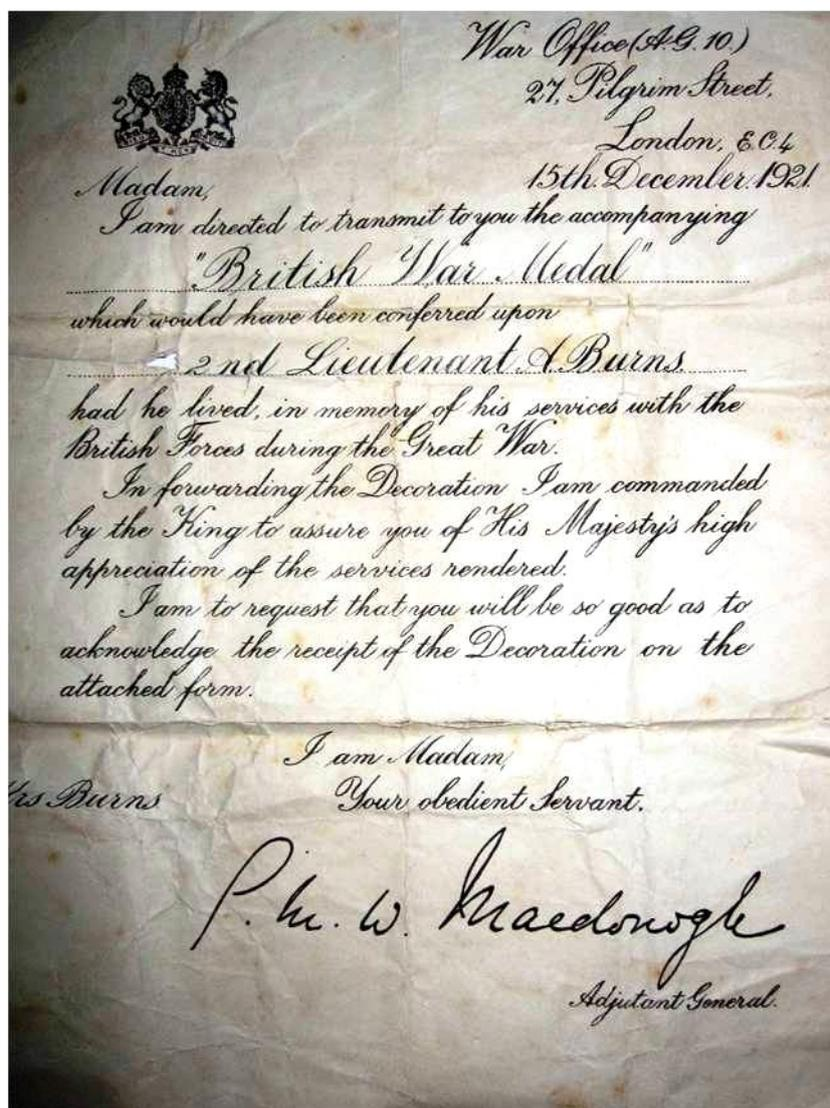 War Office (A.G. 10.)
27, Pilgrim Street,
London, E.C.4
15th. December. 1921.
Madam,
I am directed to transmit to you the accompanying
"British War Medal"
which would have been conferred upon
2nd Lieutenant A. Burns.
had he lived, in memory of his services with the
British Forces during the Great War.
In forwarding the Decoration I am commanded
by the King to assure you of His Majesty's high
appreciation of the services rendered.
I am to request that you will be so good as to
acknowledge the receipt of the Decoration on the
attached form.
I am Madam,
Your obedient Servant.
Burns
G. M. W. Macdonogh
Adjutant General.